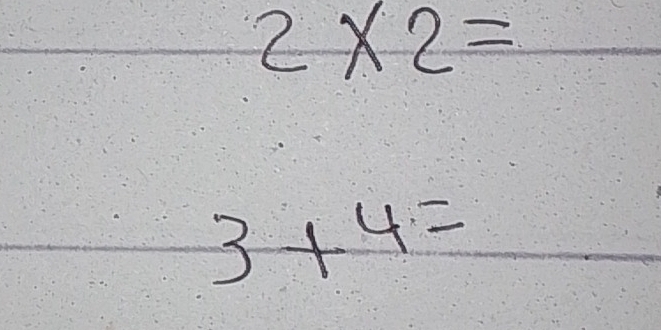 2 X 2 =
3 + 4 =